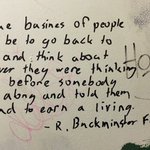 ue busines of people
be to go back to
and think about
er they were thinking
before somebody
along and told them
d to earn a living.
- R. Buckminster F